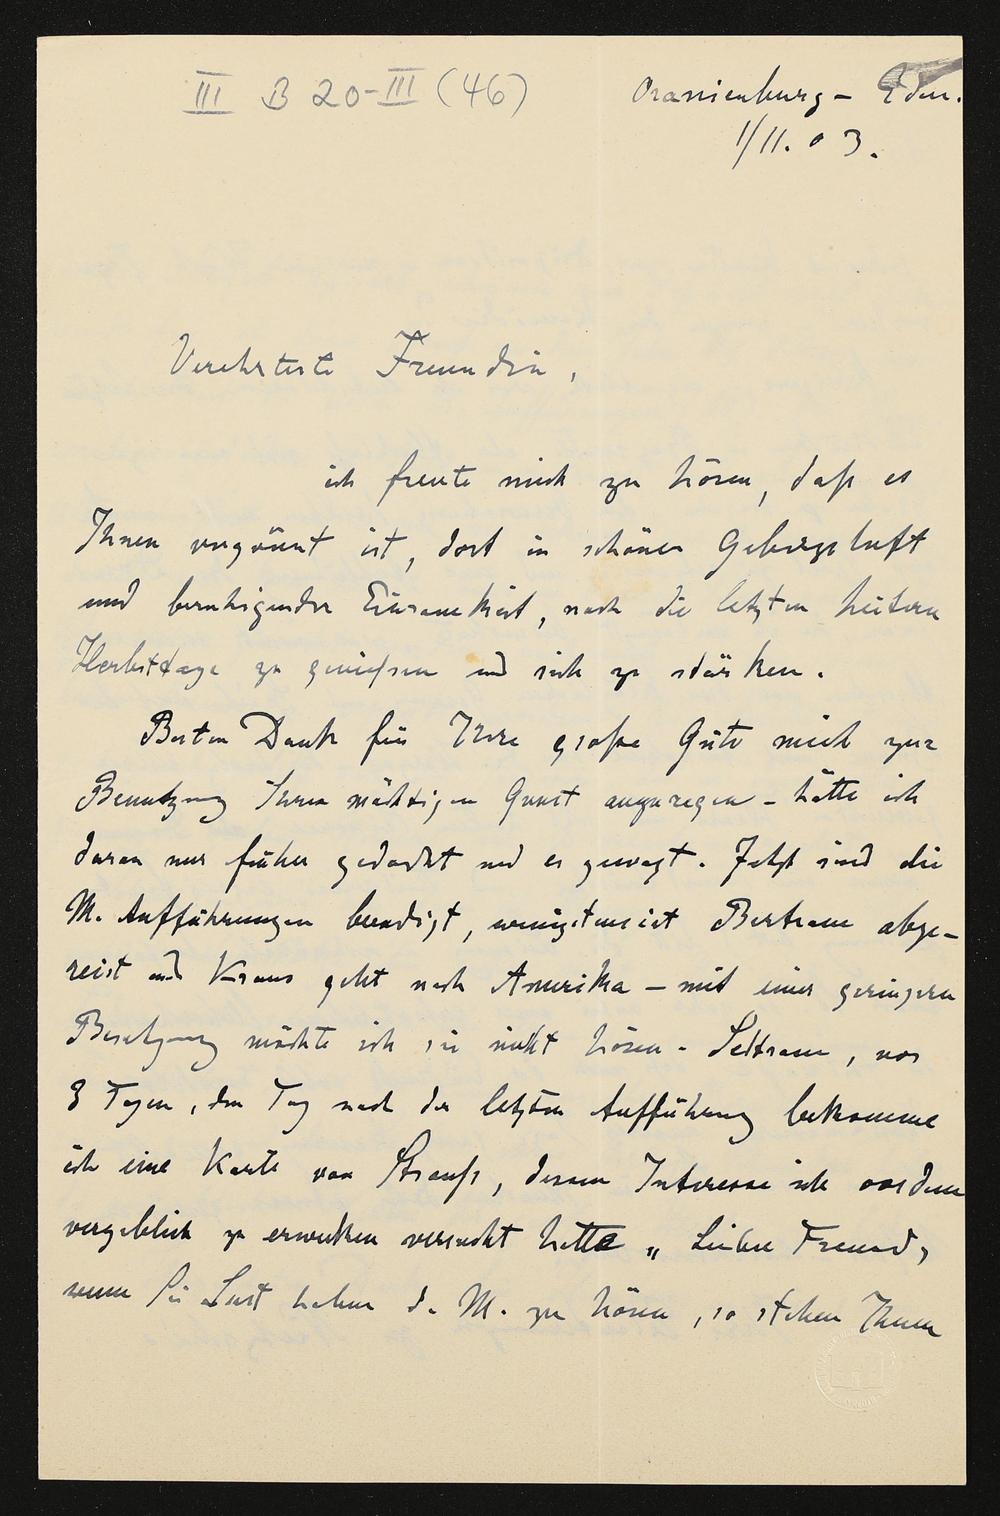 III B 20-III (46)
Oranienburg - Eden.
1/11. 03.
Verehrteste Freundin,
ich freute mich zu hören, daß es
Ihnen vergönnt ist, dort in schöner Gebirgsluft
und beruhigender Einsamkeit, noch die letzten heitern
Herbsttage zu genießen und sich zu stärken.
Besten Dank für Ihre große Güte mich zur
Benutzung Ihrer mächtigen Gunst anzuregen - hätte ich
daran nur früher gedacht und es gewagt. Jetzt sind die
M. Aufführungen beendigt, wenigstens ist Bertram abge-
reist und Kraus geht nach Amerika - mit einer geringern
Besetzung möchte ich sie nicht hören. Seltsam, vor
8 Tagen, den Tag nach der letzten Aufführung bekomme
ich eine Karte von Strauß, dessen Interesse ich vordem
vergeblich zu erwecken versucht hatte „ Lieber Freund,
wenn Sie Lust haben die M. zu hören, so stehen Ihnen